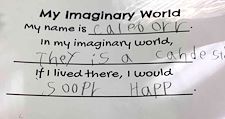 My Imaginary World
My name is caleb orr.
In my imaginary world,
They is a cande st
If I lived there, I would
soopr Happ